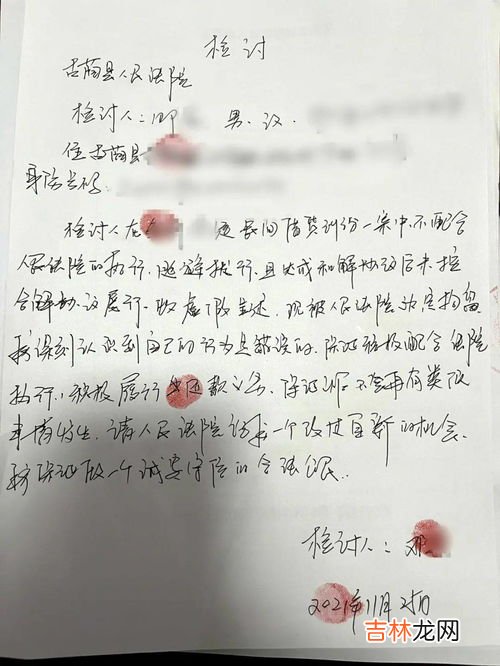 检讨
古蔺县人民法院
检讨人: 男. 汉.
住古蔺县
身份号码
检讨人在 民间借贷纠纷一案中.不配合
人民法院的执行.逃避执行.且达成和解协议后未按
合解协议履行.做虚假 现被人民法院决定拘留
我深刻认识到自己的行为是错误的.保证积极配合法院
执行.积极履行 还款义务.保证以后不会再有类似
事情发生.请人民法院给我一个改过自新的机会.
我保证做一个诚实守 的合法公民.
检讨人:邓
2021年11月25日
吉林龙网